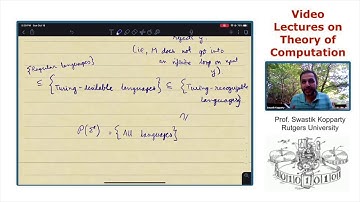 Video
Lectures on
Theory of
Computation
rejects y.
(i.e., M does not go into
an infinite loop on input
y)
{Regular languages}
⊆ {Turing-decidable languages} ⊆ {Turing-recognizable
languages}
P(Σ*) = {All languages}
Prof. Swastik Kopparty
Rutgers University